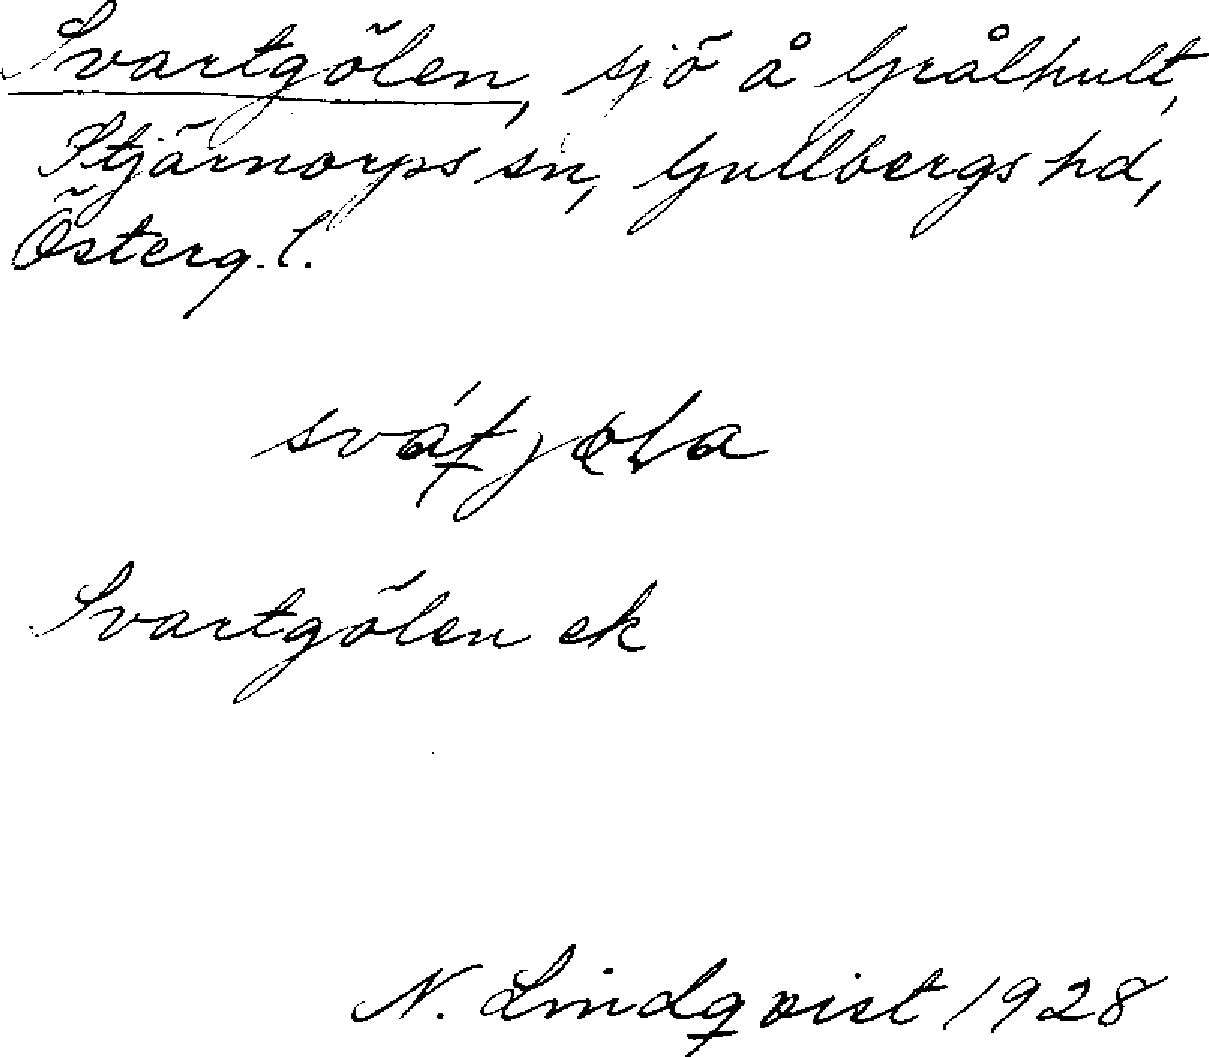 Svartgölen, sjö å Grålhult,
Stjärnorps sn, Gullbergs hd,
Österg. l.
Svartgölen ek
N. Lindqvist 1928